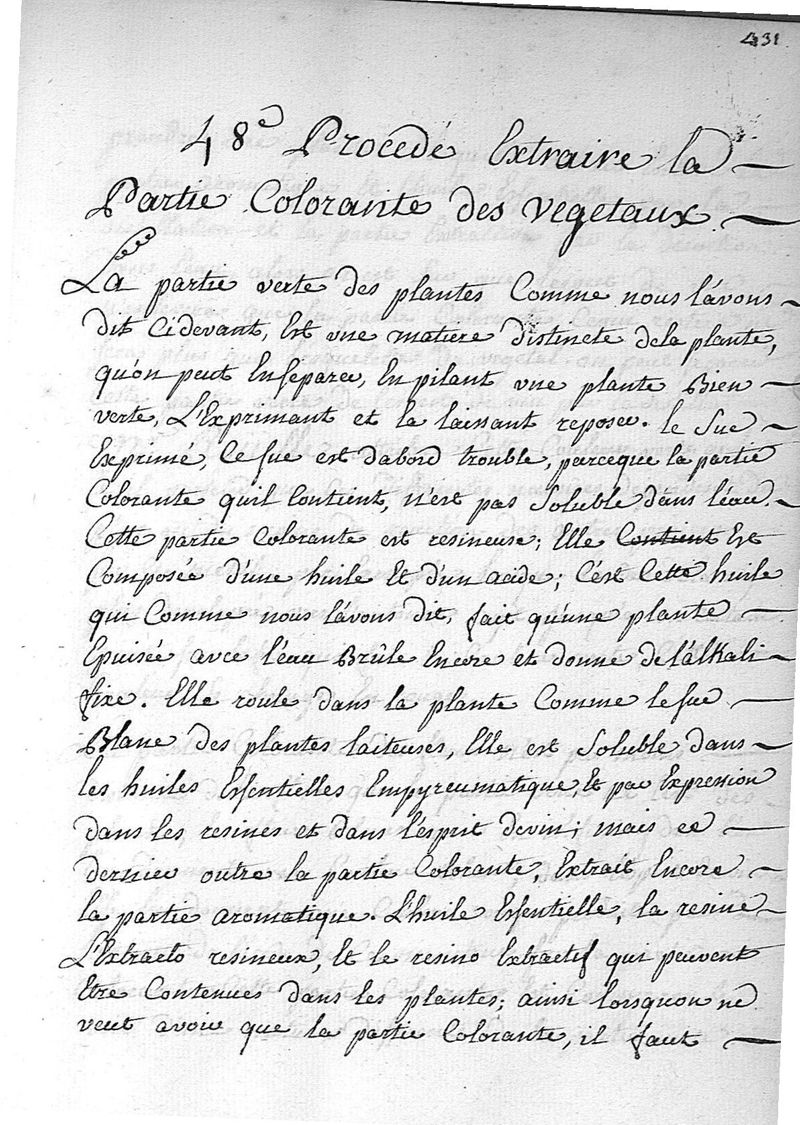 431
48e Procedé Extraire la
Partie Colorante des vegetaux.
La partie verte des plantes Comme nous l'avons
dit Cidevant, Est une matiere distincte dela plante,
qu'on peut Enseparer, En pilant une plante Bien
verte, L'Exprimant et la laissant reposer. le Suc
Exprimé, Ce suc est dabord trouble, parceque la partie
Colorante quil Contient, n'est pas Soluble dans l'eau.
Cette partie Colorante est resineuse; Elle Contient Est
Composée d'une huile Et d'un acide; C'est Cette huile
qui Comme nous l'avons dit, fait qu'une plante
Epuisée avec l'eau Brûle Encore et donne del'alkali
fixe. Elle roule dans la plante Comme lesuc
Blanc des plantes laiteuses, Elle est Soluble dans
les huiles Essentielles Empyreumatique, Et par Expression
dans les resines et dans l'esprit devin; mais ce
dernier outre la partie Colorante, Extrait Encore
la partie aromatique. L'huile Essentielle, la resine
L'Extracto resineux, Et le resino Extractif qui peuvent
Etre Contenues dans les plantes; ainsi lorsquon ne
veut avoir que la partie Colorante, il faut